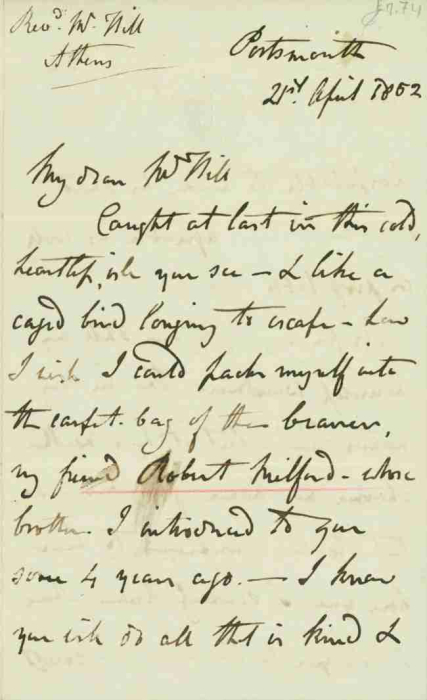 Revd. Mr. Hill
Athens
Portsmouth
21st April 1852
My dear Mr Hill
Caught at last in this cold,
heartless, isle you see - & like a
caged bird longing to escape - how
I wish I could pack myself into
the carpet-bag of the bearer,
my friend Robert Milford - whose
brother I introduced to you
some 4 years ago. - I know
you will do all that is kind &